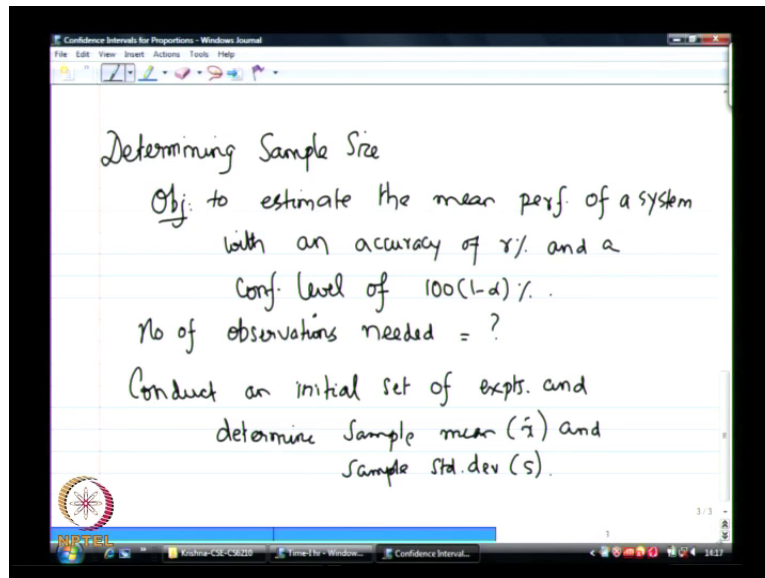 Confidence Intervals for Proportions - Windows Journal
File Edit View Insert Actions Tools Help
Determining Sample Size
Obj: to estimate the mean perf. of a system
with an accuracy of r% and a
Conf. level of 100(1-α)%.
No of observations needed = ?
Conduct an initial set of expts. and
determine Sample mean (x̄) and
Sample Std. dev (s).
3 / 3
1
NPTEL
Krishna-CSE-CS6210
Time-1hr - Window...
Confidence Interval...
14:17